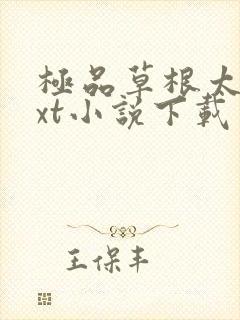 極品草根太
xt小說下載
王保丰